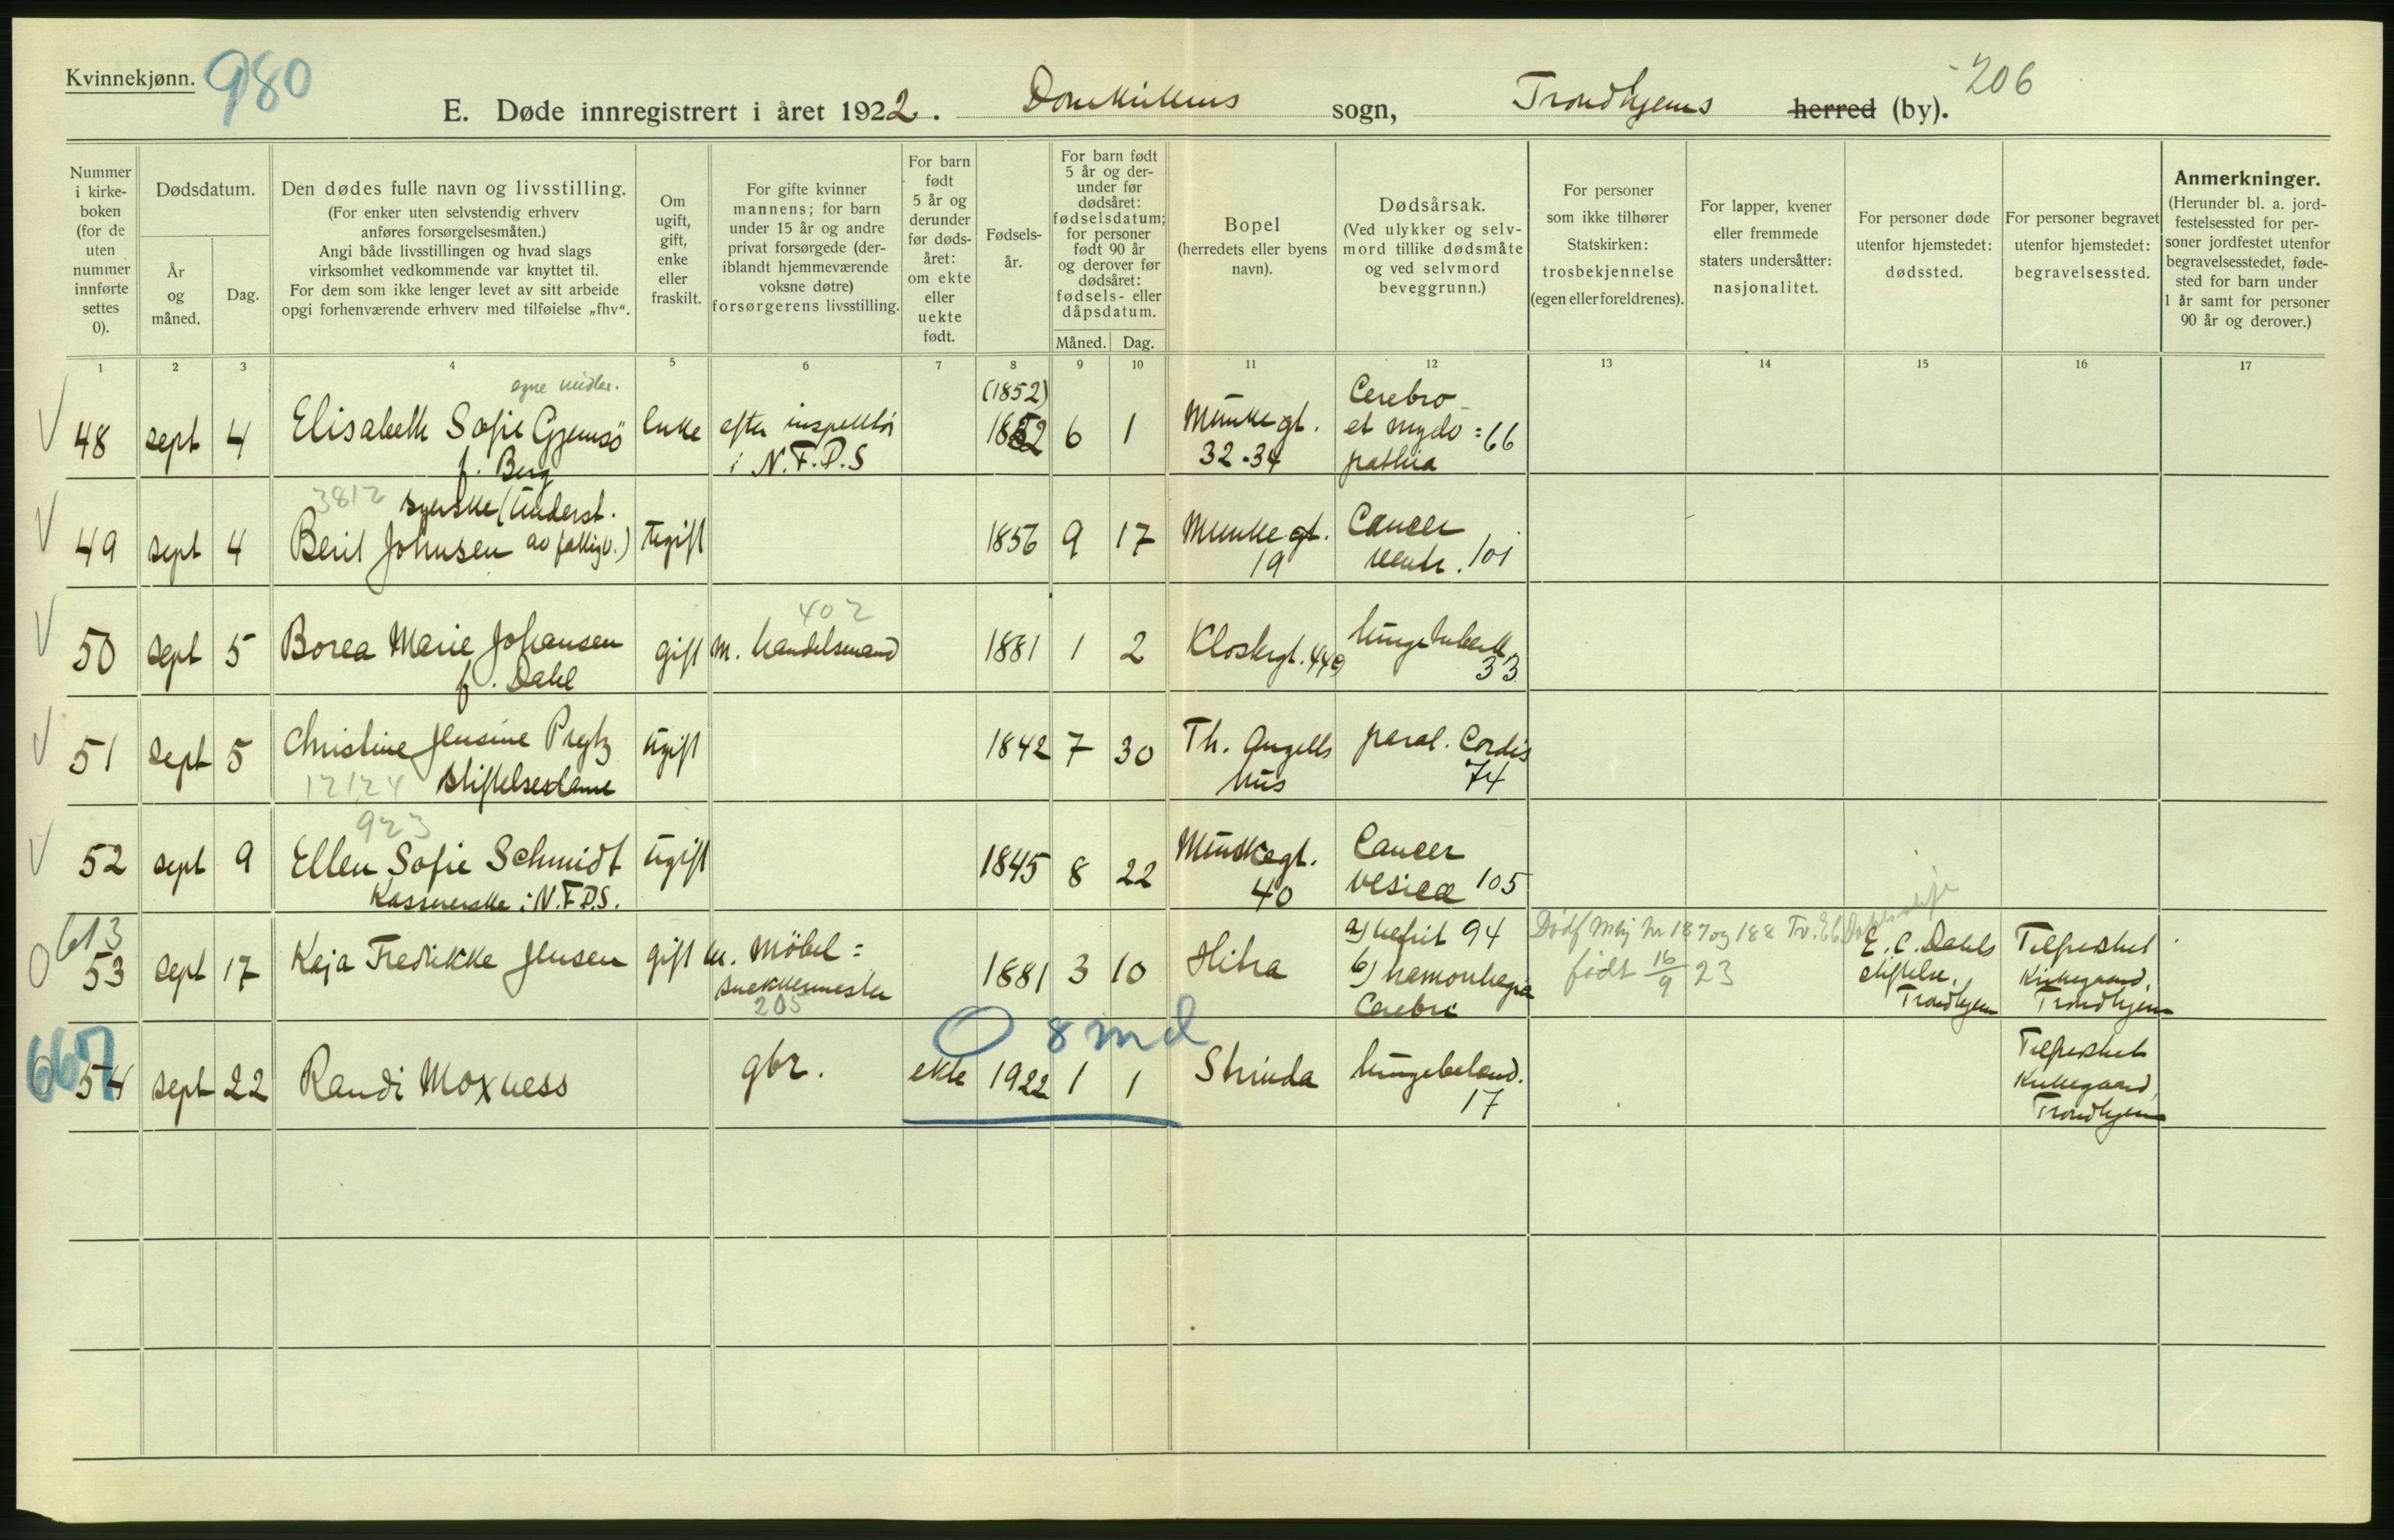 Kvinnekjønn.
980
206
E. Døde innregistrert i året 1922. Domkirkens sogn, Trondhjems herred (by).
Nummer i kirke-boken (for de uten nummer innførte settes 0).
Dødsdatum.
År og måned.
Dag.
Den dødes fulle navn og livsstilling.
(For enker uten selvstendig erhverv anføres forsørgelsesmåten.)
Angi både livsstillingen og hvad slags virksomhet vedkommende var knyttet til.
For dem som ikke lenger levet av sitt arbeide opgi forhenværende erhverv med tilføielse „fhv“.
Om ugift, gift, enke eller fraskilt.
For gifte kvinner mannens; for barn under 15 år og andre privat forsørgede (der-iblandt hjemmeværende voksne døtre) forsørgerens livsstilling.
For barn født 5 år og derunder før døds-året: om ekte eller uekte født.
Fødsels-år.
For barn født 5 år og der-under før dødsåret: fødselsdatum; for personer født 90 år og derover før dødsåret: fødsels- eller dåpsdatum.
Måned. Dag.
Bopel
(herredets eller byens navn).
Dødsårsak.
(Ved ulykker og selv-mord tillike dødsmåte og ved selvmord beveggrunn.)
For personer som ikke tilhører Statskirken: trosbekjennelse (egen eller foreldrenes).
For lapper, kvener eller fremmede staters undersåtter: nasjonalitet.
For personer døde utenfor hjemstedet: dødssted.
For personer begravet utenfor hjemstedet: begravelsessted.
Anmerkninger.
(Herunder bl. a. jord-festelsessted for per-soner jordfestet utenfor begravelsesstedet, føde-sted for barn under 1 år samt for personer 90 år og derover.)
1 2 3 4 5 6 7 8 9 10 11 12 13 14 15 16 17
egne midler. (1852) Cerebro
48 sept 4 Elisabeth Sofie Gjemsö enke efter inspektör 1852 6 1 Munkegt. et myelo = 66
f. Berg i N.F.D.S 32-34 pathia
3812 syerske (underst.
49 sept 4 Beril Johnsen av fattigv.) ugift 1856 9 17 Munkegt. Cancer
19 ventr. 101
402
50 sept 5 Borea Marie Johansen gift m. handelsmand 1881 1 2 Klostergt. 44 lungetuberk.
f. Dahl 33
51 sept 5 Christine Jensine Preytz ugift 1842 7 30 Th. Angells paral. Cordis
12124 stiftelsesdame hus 74
923
52 sept 9 Ellen Sofie Schmidt ugift 1845 8 22 Munkegt. Cancer
Kassererske i N.F.D.S. 40 vesicæ 105
613 a) nefrit 94 Dødf mkj Nr 187 og 188 Tr. E C Dahls stift
0 53 sept 17 Kaja Fredrikke Jensen gift m. Möbel= 1881 3 10 Hitra b) hæmorrhagia født 16/9 23 E. C. Dahls Tilfredshet
snekkermester Cerebri stiftelse, Kirkegaard,
205 Trondhjem Trondhjem
0 8 md
667 Tilfredshet
0 54 sept 22 Randi Moxness gbr. ekte 1922 1 1 Strinda lungebetænd. Kirkegaard,
17 Trondhjem